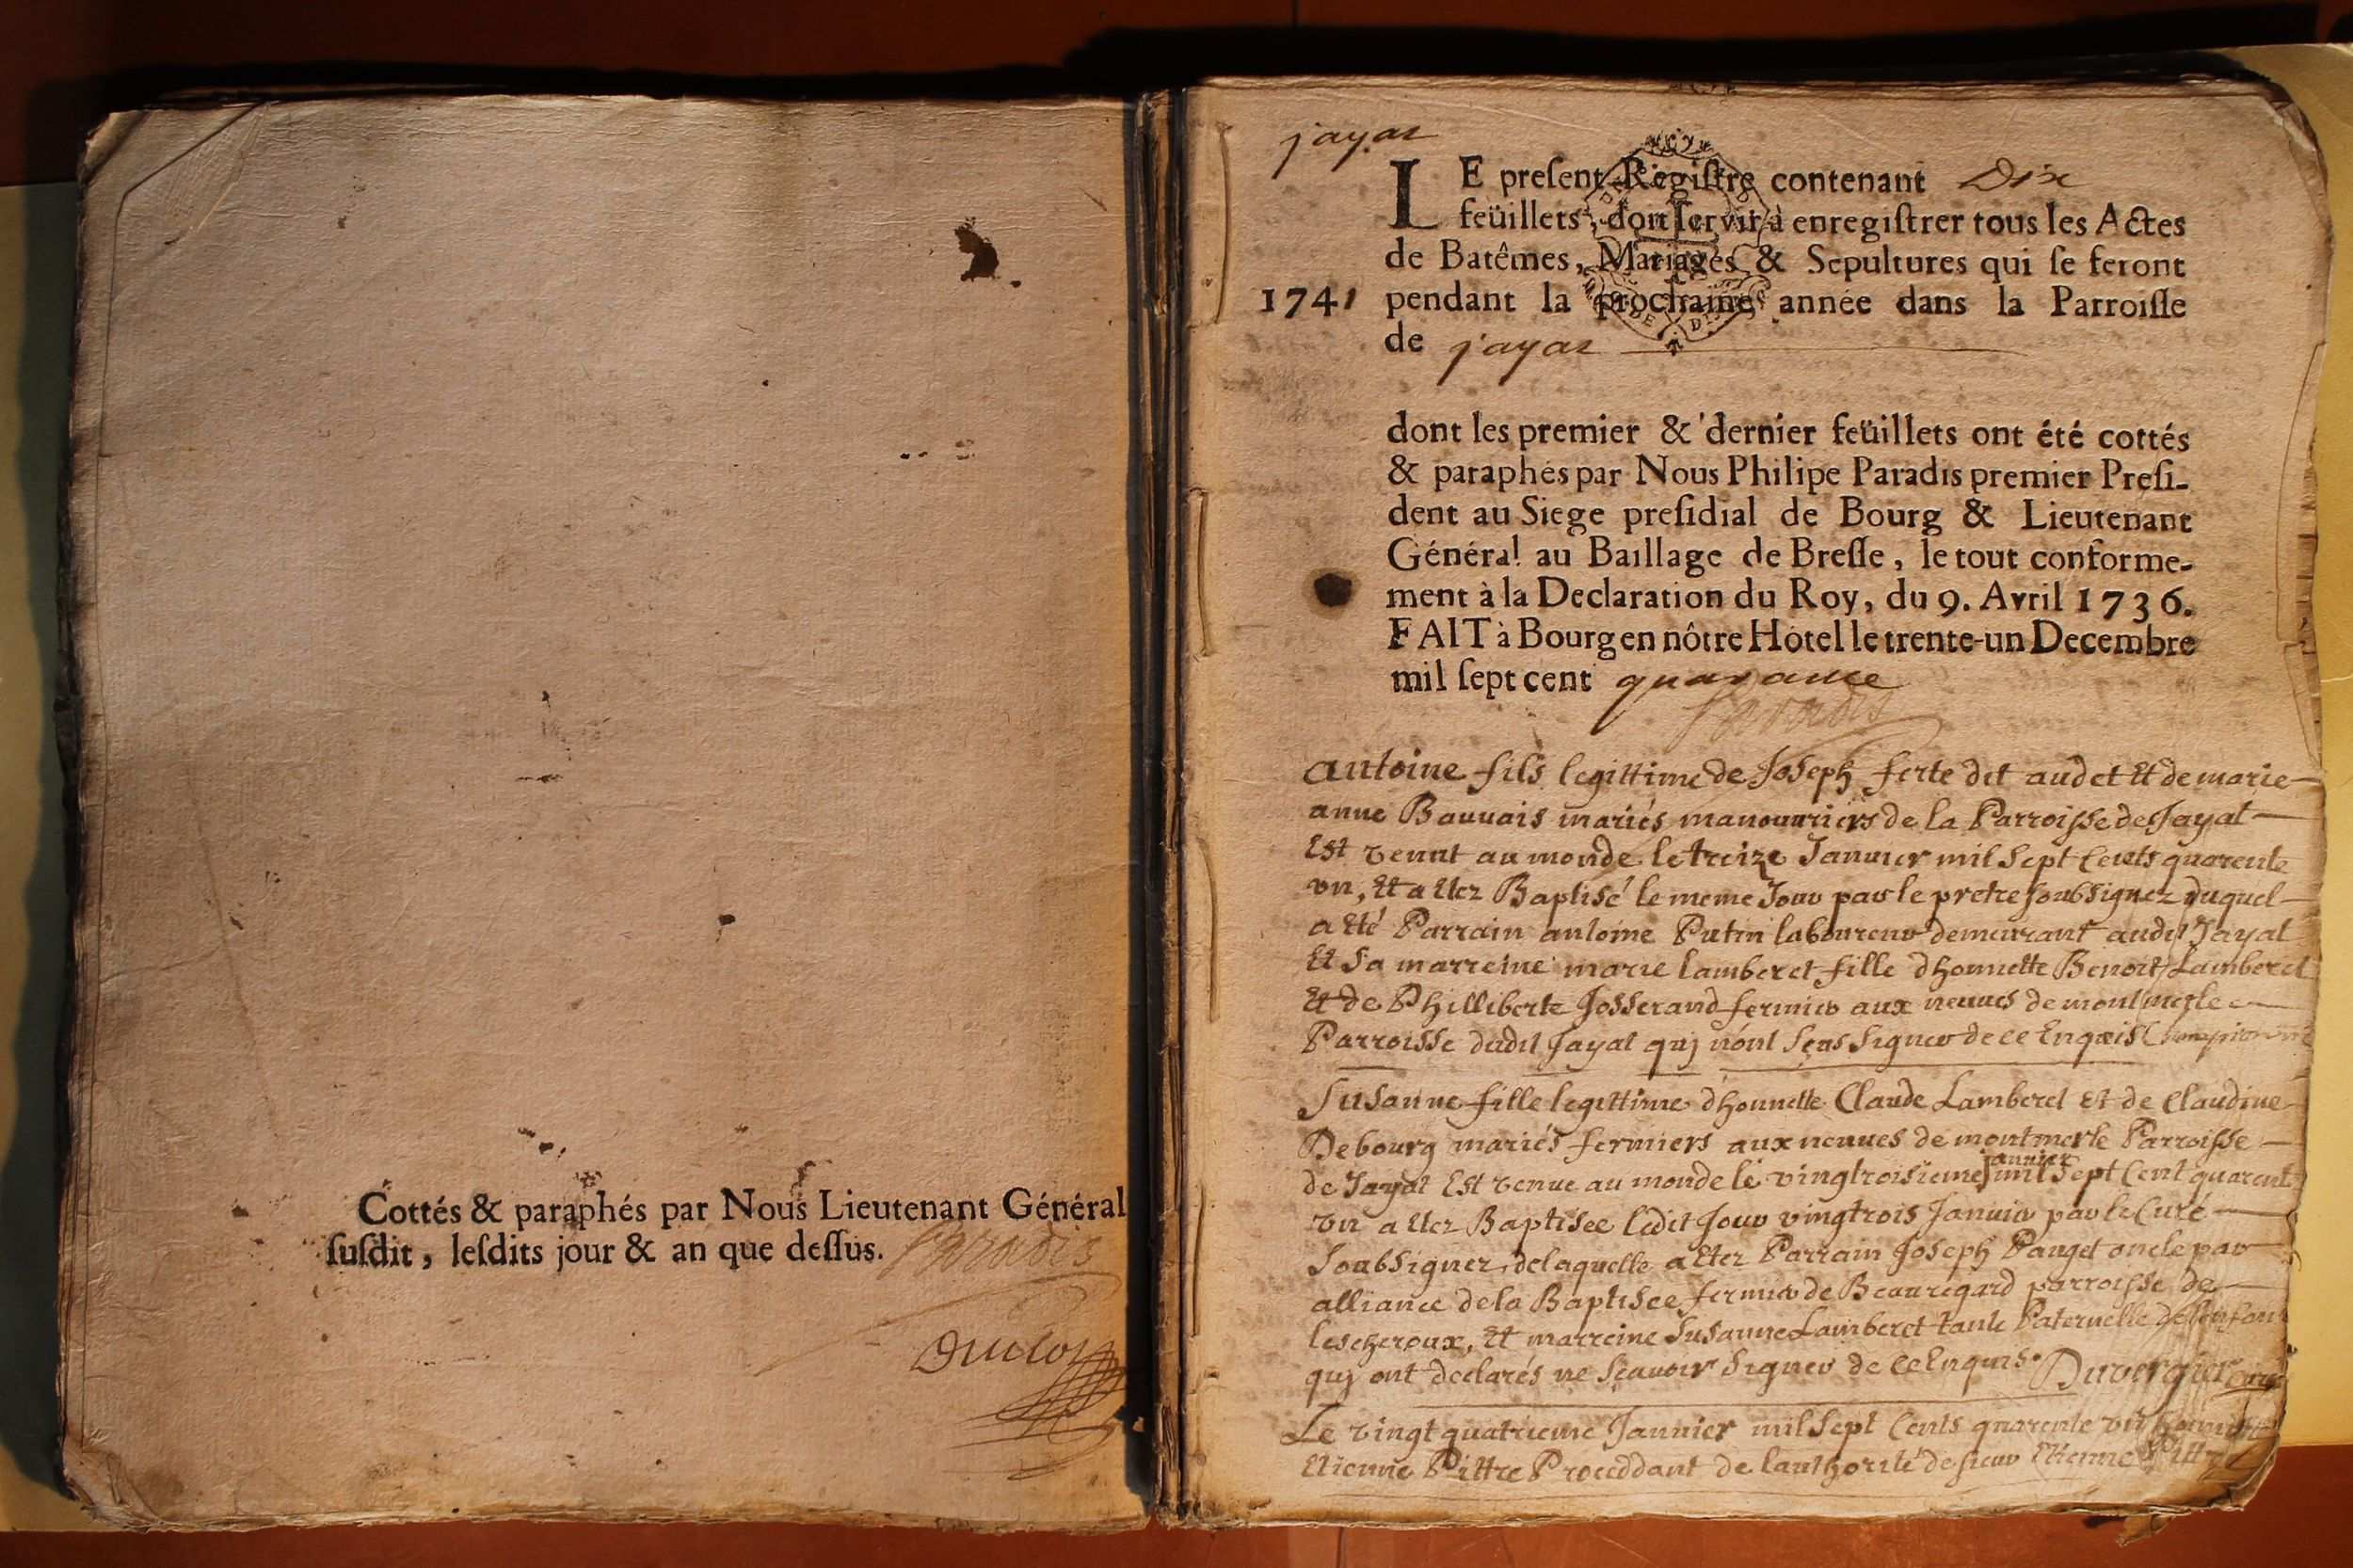 Cottés & paraphés par Nous Lieutenant Général
ſuſdit, leſdits jour & an que deſſus. Paradis
jayat
LE preſent Regiſtre contenant Dix
feüillets, dont ſervir à enregiſtrer tous les Actes
de Batêmes, Mariages & Sepultures qui ſe feront
1741 pendant la prochaine année dans la Parroiſſe
de jayat
dont les premier & dernier feüillets ont été cottés
& paraphés par Nous Philipe Paradis premier Preſi-
dent au Siege preſidial de Bourg & Lieutenant
Général au Baillage de Breſſe, le tout conforme-
ment à la Declaration du Roy, du 9. Avril 1736.
FAIT à Bourg en nôtre Hôtel le trente-un Decembre
mil ſept cent quarante
Paradis
antoine fils legittime de Joseph ferte dit audet Et de marie
anne Bauvais mariés manouvriers de la Parroisse de Jayat
Est venut au monde le treize Janvier mil Sept Cents quarente
vn, Et a Etez Baptisé le meme Jour par le pretre soubsignez duquel
a Eté Parrain antoine Putin laboureur demeurant audit Jayat
Et Sa marreine marie lamberet fille dhonnette Benoit Lamberet
Et de Philliberte Josserand fermier aux neuves de montmerle
Parroisse dudit Jayat quj n'ont sçus signer de ce Enquis
Susanne fille legittime dhonnette Claude Lamberet Et de Claudine
Debourg mariés fermiers aux neuves de montmerle Parroisse
de Jayat Est venue au monde le vingtroisieme janvier mil Sept Cent quarente
vn a Etez Baptisee ledit Jour vingtrois Janvier par le Curé
Soubsignez, delaquelle a Etez Parrain Joseph Pauget oncle par
alliance de la Baptisee fermier de Beauregard parroisse de
lescheroux, Et marreine Susanne Lamberet tante Paternelle de l'enfant
quj ont declarés ne Sçavoir Signer de ce Enquis. Duvergier curé
Le vingt quatrieme Janvier mil Sept Cents quarente vn honnette
Etienne Pittre Proceddant de lauthorité de sieur Etienne Pittre